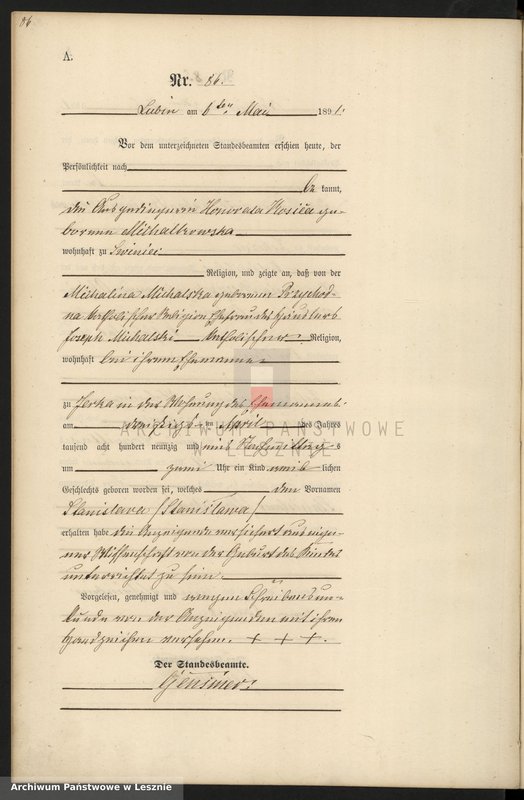 86
A.
Nr. 86.
Lubin am 6ten Mai 1891.
Vor dem unterzeichneten Standesbeamten erschien heute, der
Persönlichkeit nach
be kannt,
die Ausgedingerin Honorata Kosicka ge-
borene Michalkowska
wohnhaft zu Swiniec
Religion, und zeigte an, daß von der
Michalina Michalska geborenen Przychod-
na katholischer Religion, Ehefrau des Händlers
Joseph Michalski katholischer Religion,
wohnhaft bei ihrem Ehemanne
zu Jerka in der Wohnung des Ehemannes
am dreißigsten April des Jahres
tausend acht hundert neunzig und eins Nachmittags
um zwei Uhr ein Kind weib lichen
Geschlechts geboren worden sei, welches den Vornamen
Stanislava /Stanisława/
erhalten habe. die Anzeigende versichert aus eige-
ner Wissenschaft von der Geburt des Kindes
unterrichtet zu sein.
Vorgelesen, genehmigt und wegen Schreibensun-
kunde von der Anzeigenden mit ihrem
Handzeichen versehen. + + +.
Der Standesbeamte.
ARCHIWUM PAŃSTWOWE
W LESZNIE
Archiwum Państwowe w Lesznie